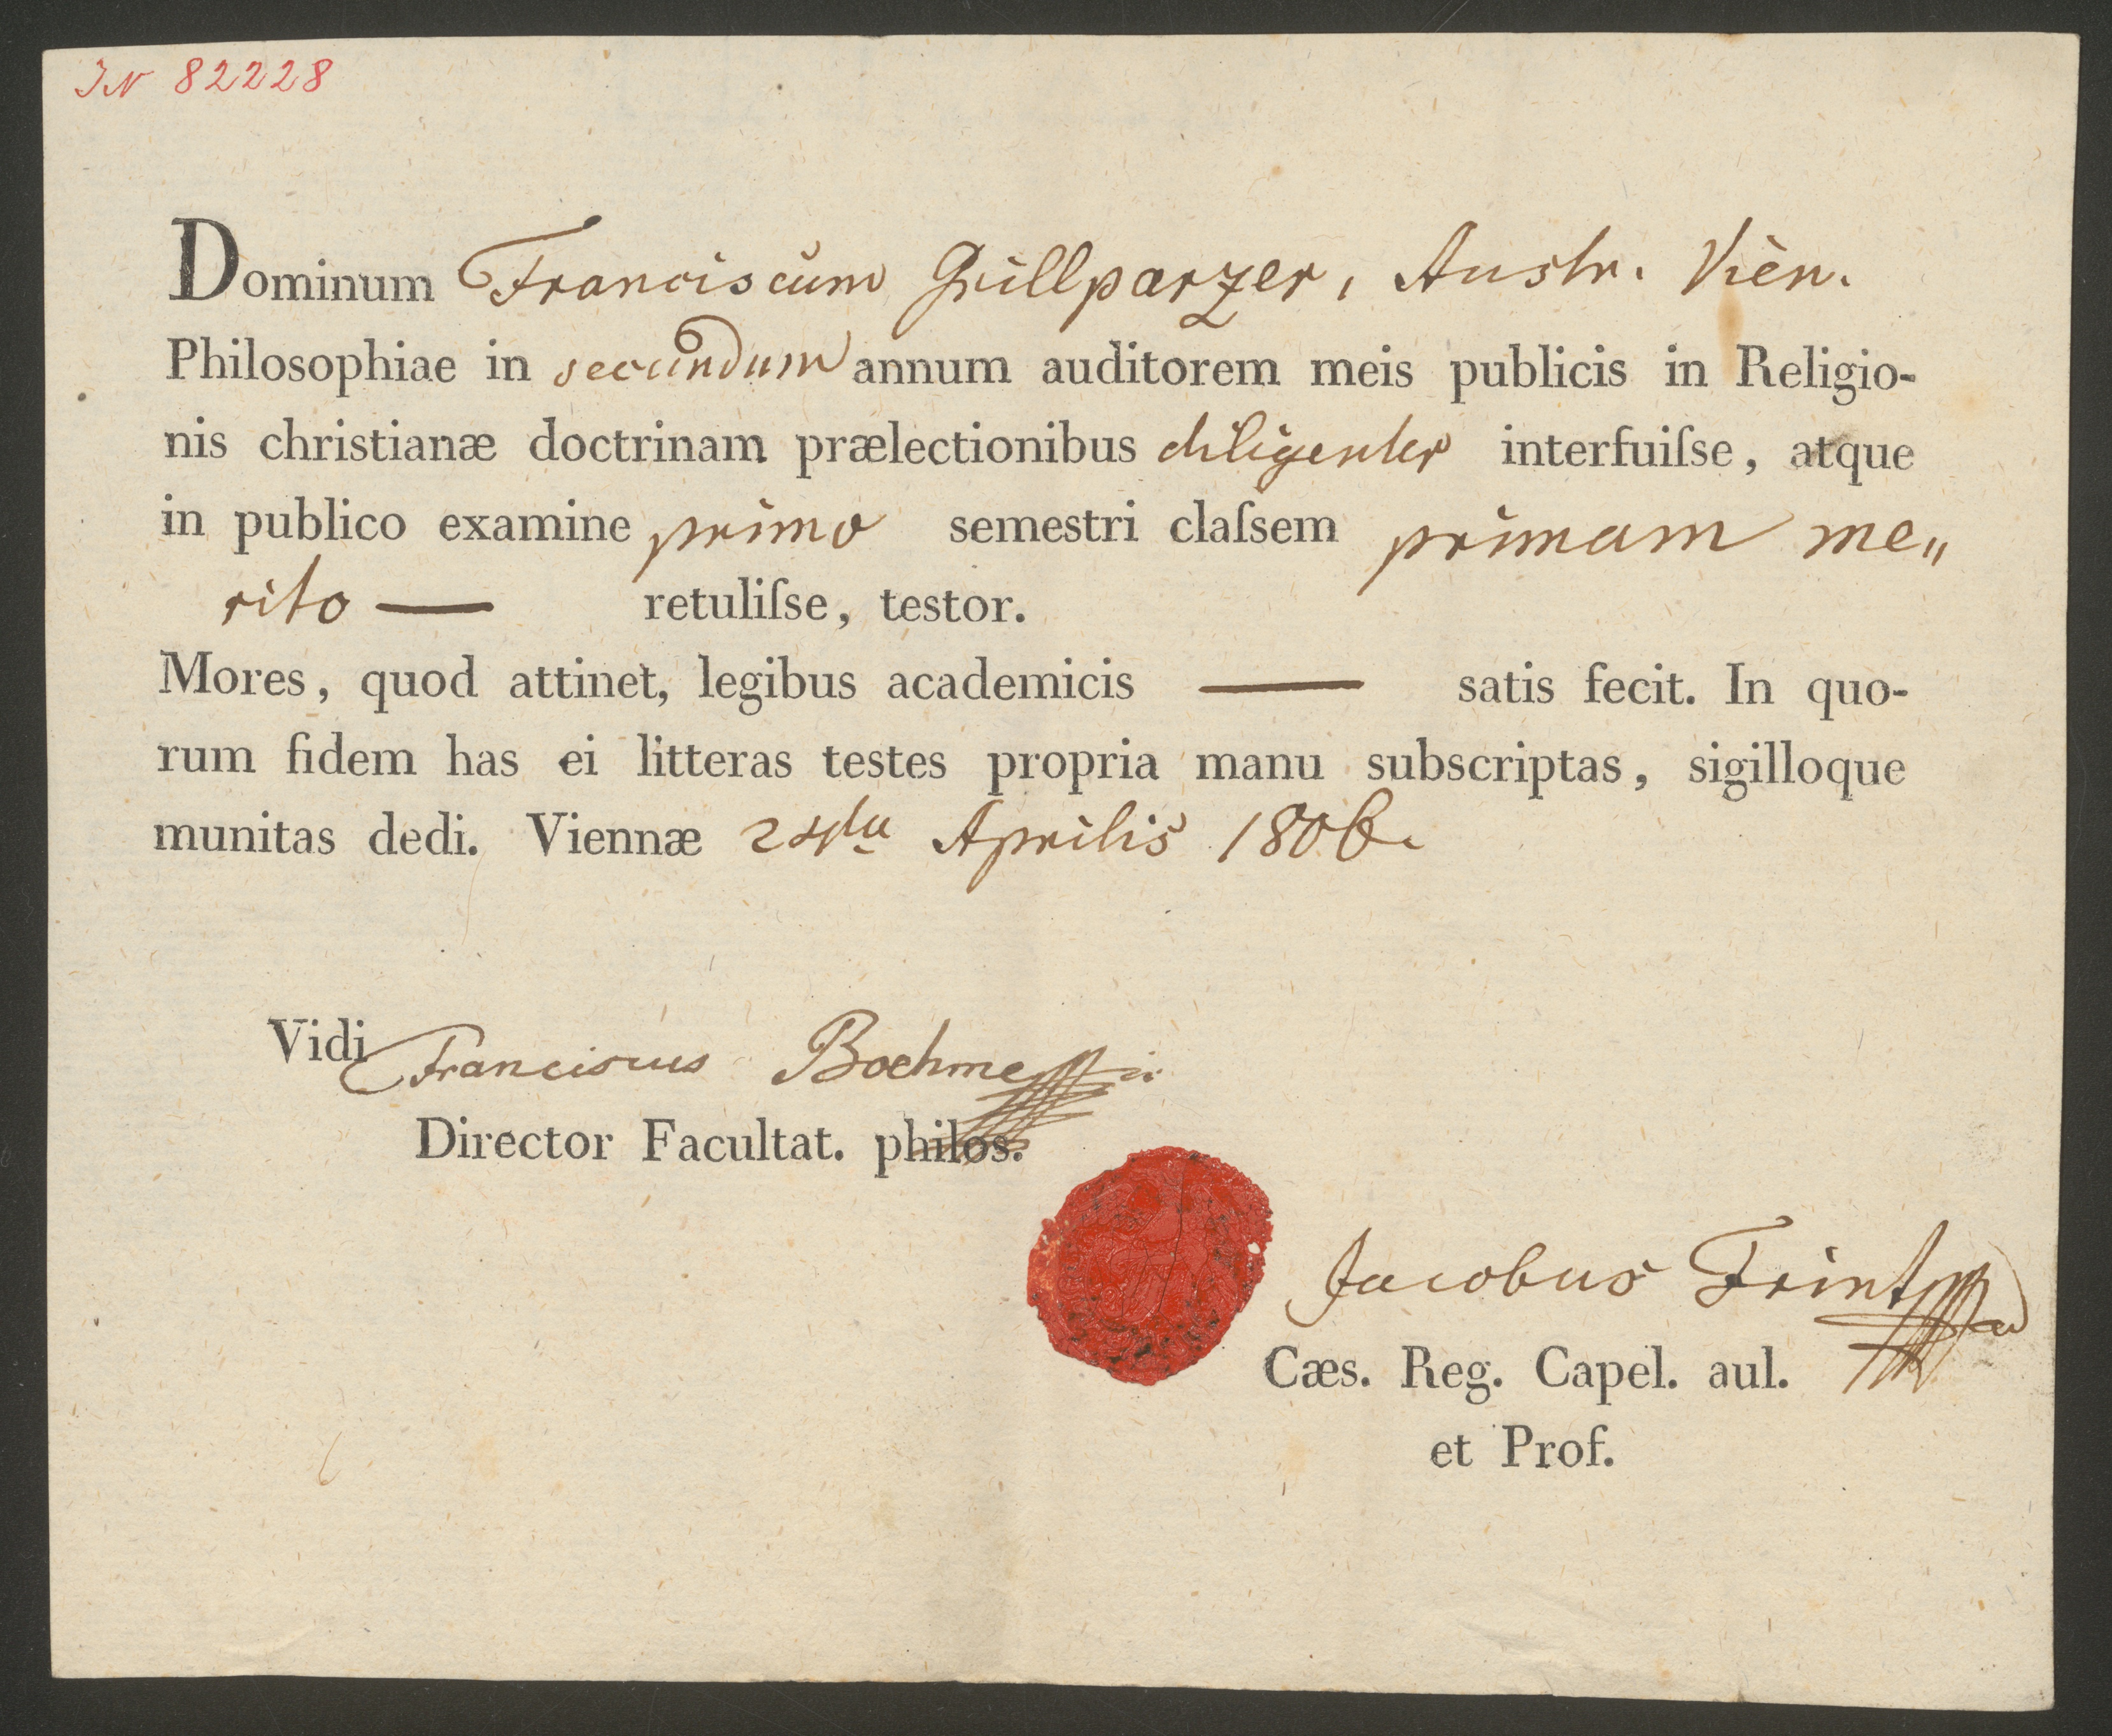 IN 82228
Dominum Franciscum Grillparzer, Austr. Vien.
Philosophiae in secundum annum auditorem meis publicis in Religio-
nis christianæ doctrinam prælectionibus diligenter interfuiſse, atque
in publico examine primo semestri claſsem primam me„
rito — retuliſse, testor.
Mores, quod attinet, legibus academicis — satis fecit. In quo-
rum fidem has ei litteras testes propria manu subscriptas, sigilloque
munitas dedi. Viennæ 24ta Aprilis 1806.
Vidi Franciscus Boehme
Director Facultat. philos.
Jacobus Frint
Cæs. Reg. Capel. aul.
et Prof.